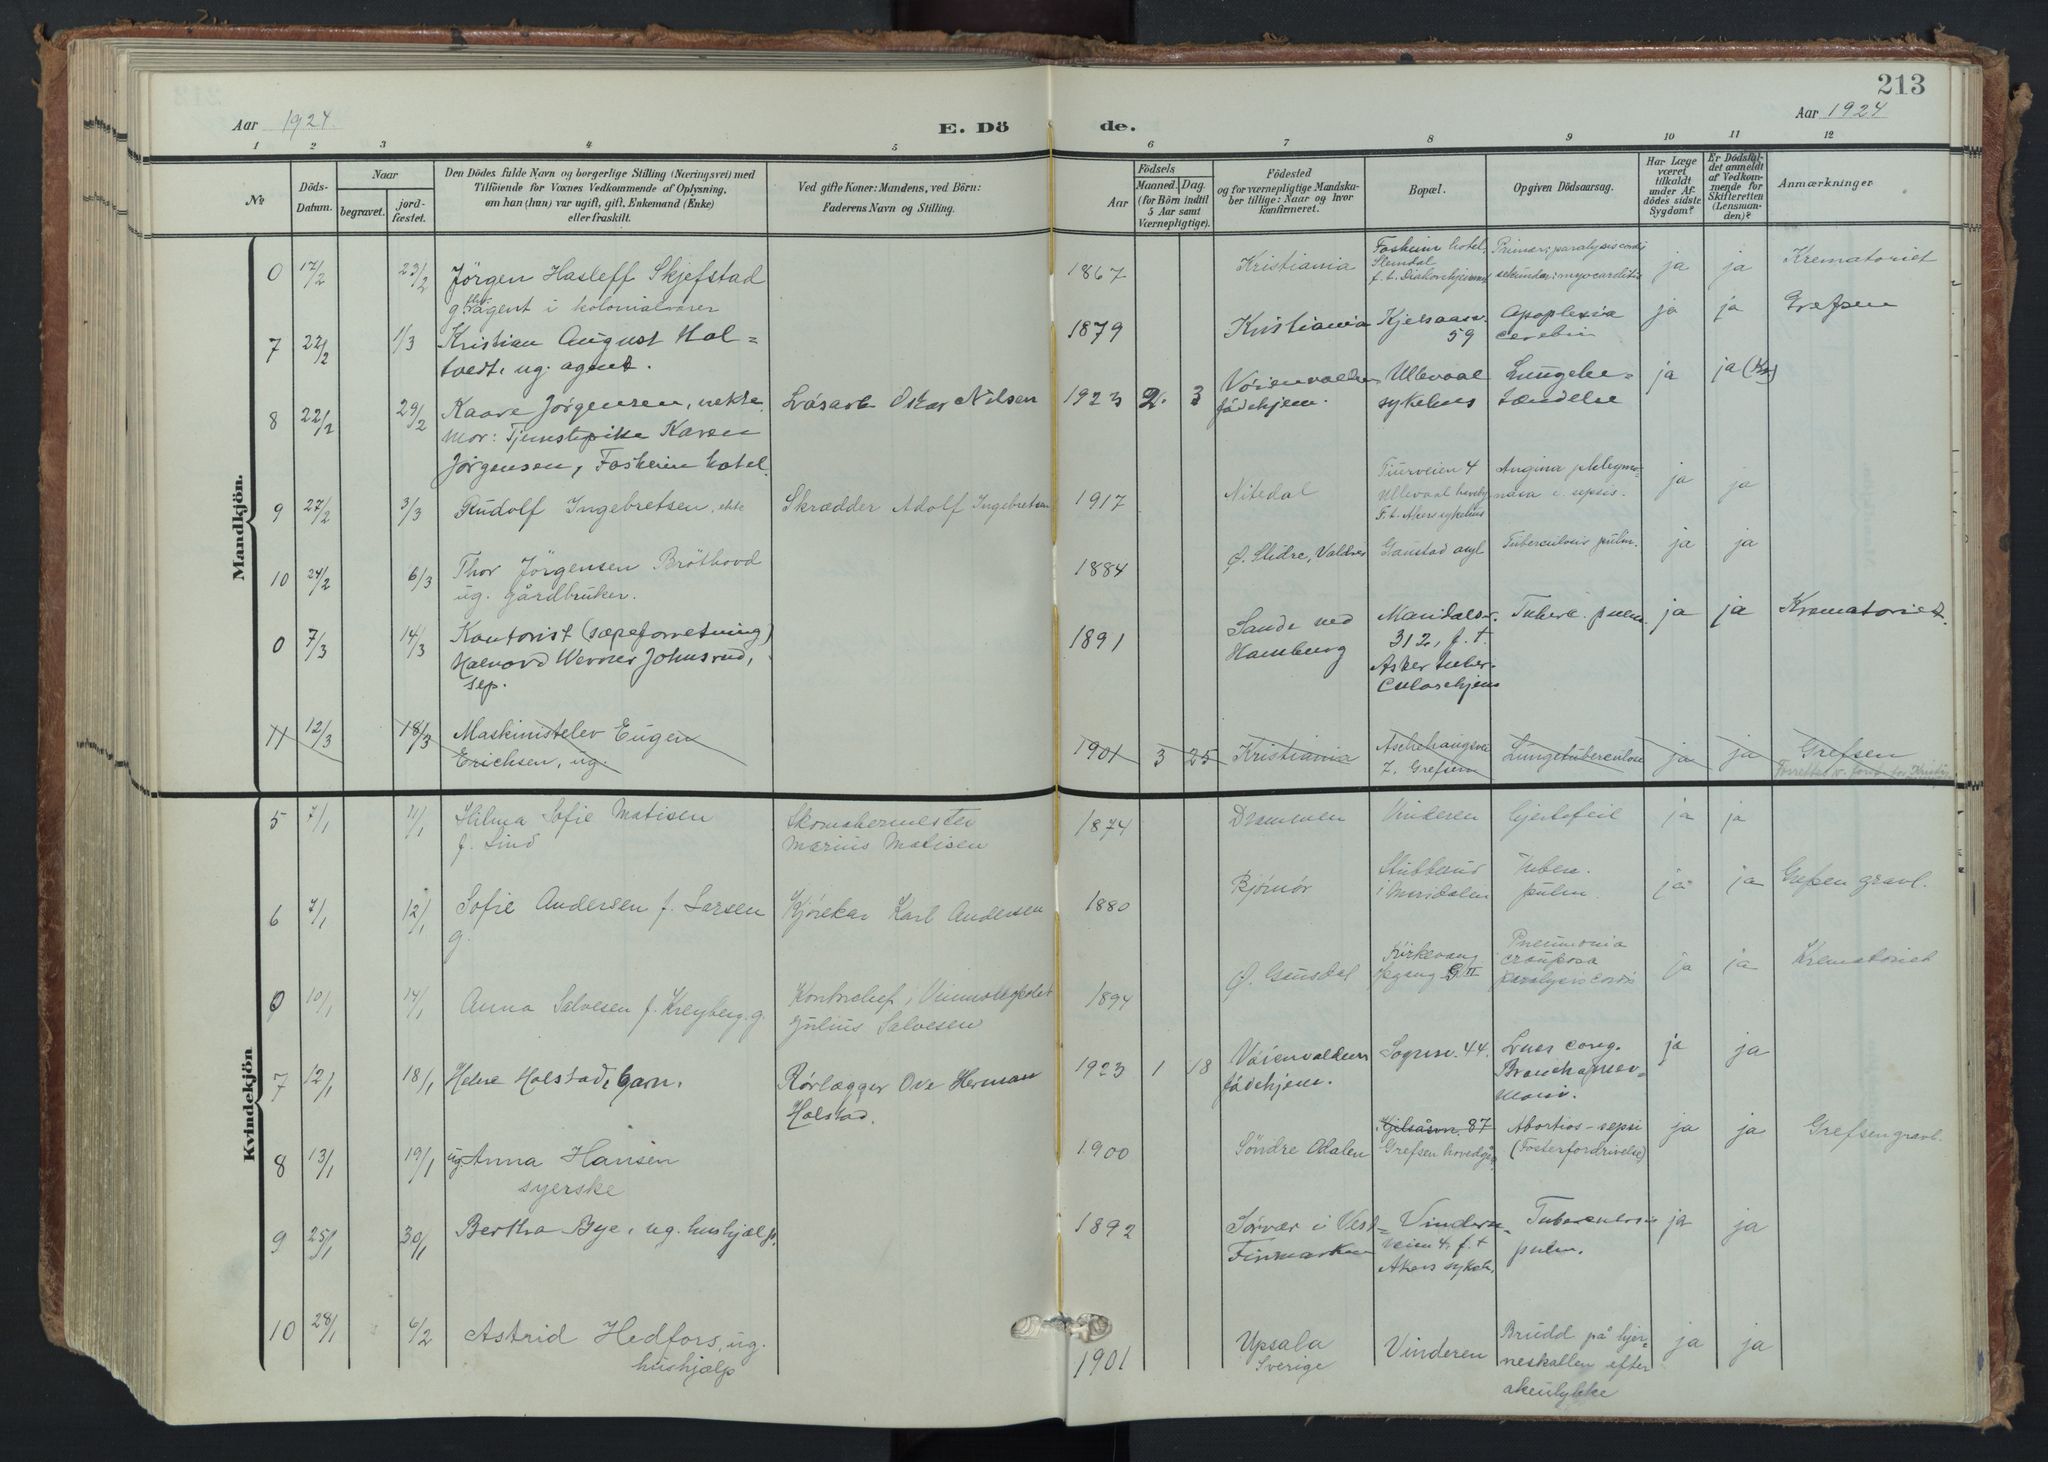 213
Aar 1924
E. Dö
de.
Aar 1924
1 2 3 4 5 6 7 8 9 10 11 12
No
Döds-
Datum.
Naar
begravet.
jord-
fæstet.
Den Dödes fulde Navn og borgerlige Stilling (Næringsvei) med
Tilföiende for Voxnes Vedkommende af Oplysning,
om han (hun) var ugift, gift, Enkemand (Enke)
eller fraskilt.
Ved gifte Koner: Mandens, ved Börn:
Faderens Navn og Stilling.
Födsels
Aar
Maaned. Dag.
(for Börn indtil
5 Aar samt
Værnepligtige).
Födested
og for værnepligtige Mandska-
ber tillige: Naar og hvor
konfirmeret.
Bopæl.
Opgiven Dödsaarsag.
Har Læge
været
tilkaldt
under Af-
dödes sidste
Sygdom?
Er Dödsfal-
det anmeldt
af Vedkom-
mende for
Skifteretten
(Lensman-
den)?
Anmærkninger
Mandkjön.
0 17/2 23/2 Jörgen Hasleff Skjefstad
g. agent i kolonialvarer
1867 Kristiania
Foskeim hotel,
Slemdal
f. t. Diakonhjemmet
Primær: paralysis cordis
sekundær: myocarditis
ja ja Krematoriet
7 22/2 1/3 Kristian August Hol-
tvedt, ug. agent.
1879 Kristiania
Kjelsaasv.
59
Apoplexia
cerebri
ja ja Grefsen
8 22/2 29/2 Kaare Jörgensen, uekte
Mor: Tjenstepike Karen
Jörgensen, Foskeim hotel.
Lösarb. Oskar Nilsen
1923 2. 3 Vöienvolden
födehjem.
Ullevaal
sykehus
Lungebe-
tændelse
ja ja
9 27/2 3/3 Rudolf Ingebretsen, ekte
Skrædder Adolf Ingebretsen
1917 Nitedal
Tiurveien 4
Ullevaal haveby
F. t. Akers sykehus
Angina phlegmo-
nosa c. sepsis.
ja ja
10 24/2 6/3 Thor Jörgensen Bröthovd
ug. gårdbruker.
1884 Ö. Slidre, Valdres Gaustad asyl Tuberculosis pulm. ja ja
0 7/3 14/3 Kontorist (sæpeforretning)
Halvard Werner Johnsrud,
sep.
1891 Sande ved
Hamburg
Mandalsv.
312, f. t.
Asker tuber-
culosehjem
Tuberc. pulm. ja ja Krematoriet.
11 12/3 18/3 Maskinistelev Eugen
Erichsen, ug.
1901 3 25 Kristiania
Aschehaugsvei
7. Grefsen
Lungetuberculose ja ja Grefsen
Kvindekjön
5 7/1 11/1 Hilma Sofie Matisen
f. Lind
Skomakermester
Marius Matisen
1874 Drammen Vinderen Hjertefeil ja ja
6 7/1 12/1 Sofie Andersen f. Larsen
g.
Kjörekar Karl Andersen
1880 Bjömör
Stubberud
i Maridalen
Tuberc.
pulm.
ja ja Grefsen gravl.
0 10/1 14/1 Anna Salvesen f. Kreyberg. g.
Kontorchef i Vinmonopolet
Julius Salvesen
1894 Ö. Gausdal
Kirkevang
opgang G II
Pneumonia
crouposa
paralysis cordis
ja ja Krematoriet
7 12/1 18/1 Helne Holstad, barn.
Rörlægger Ove Herman
Holstad.
1923 1 18 Vöienvolden
födehjem.
Sognsv. 44.
Lues cong.
Bronchopneu-
moni.
ja ja
8 13/1 19/1 ug. Anna Hansen
syerske
1900 Söndre Odalen
Kjelsåsvn. 87
Grefsen hovedgård
Abortios-sepsi
(Fosterfordrivelse)
ja ja Grefsen gravl.
9 25/1 30/1 Bertha Bye, ug. hushjælp.
1892 Sörvær i Vest-
Finmarken
Vinderen-
veien 4, f. t.
Akers sykeh.
Tuberculosis
pulm.
ja ja
10 28/1 6/2 Astrid Hedfors, ug.
hushjælp
1901 Upsala
Sverige
Vinderen
Brudd på hjer-
neskallen efter
akeulykke
ja ja